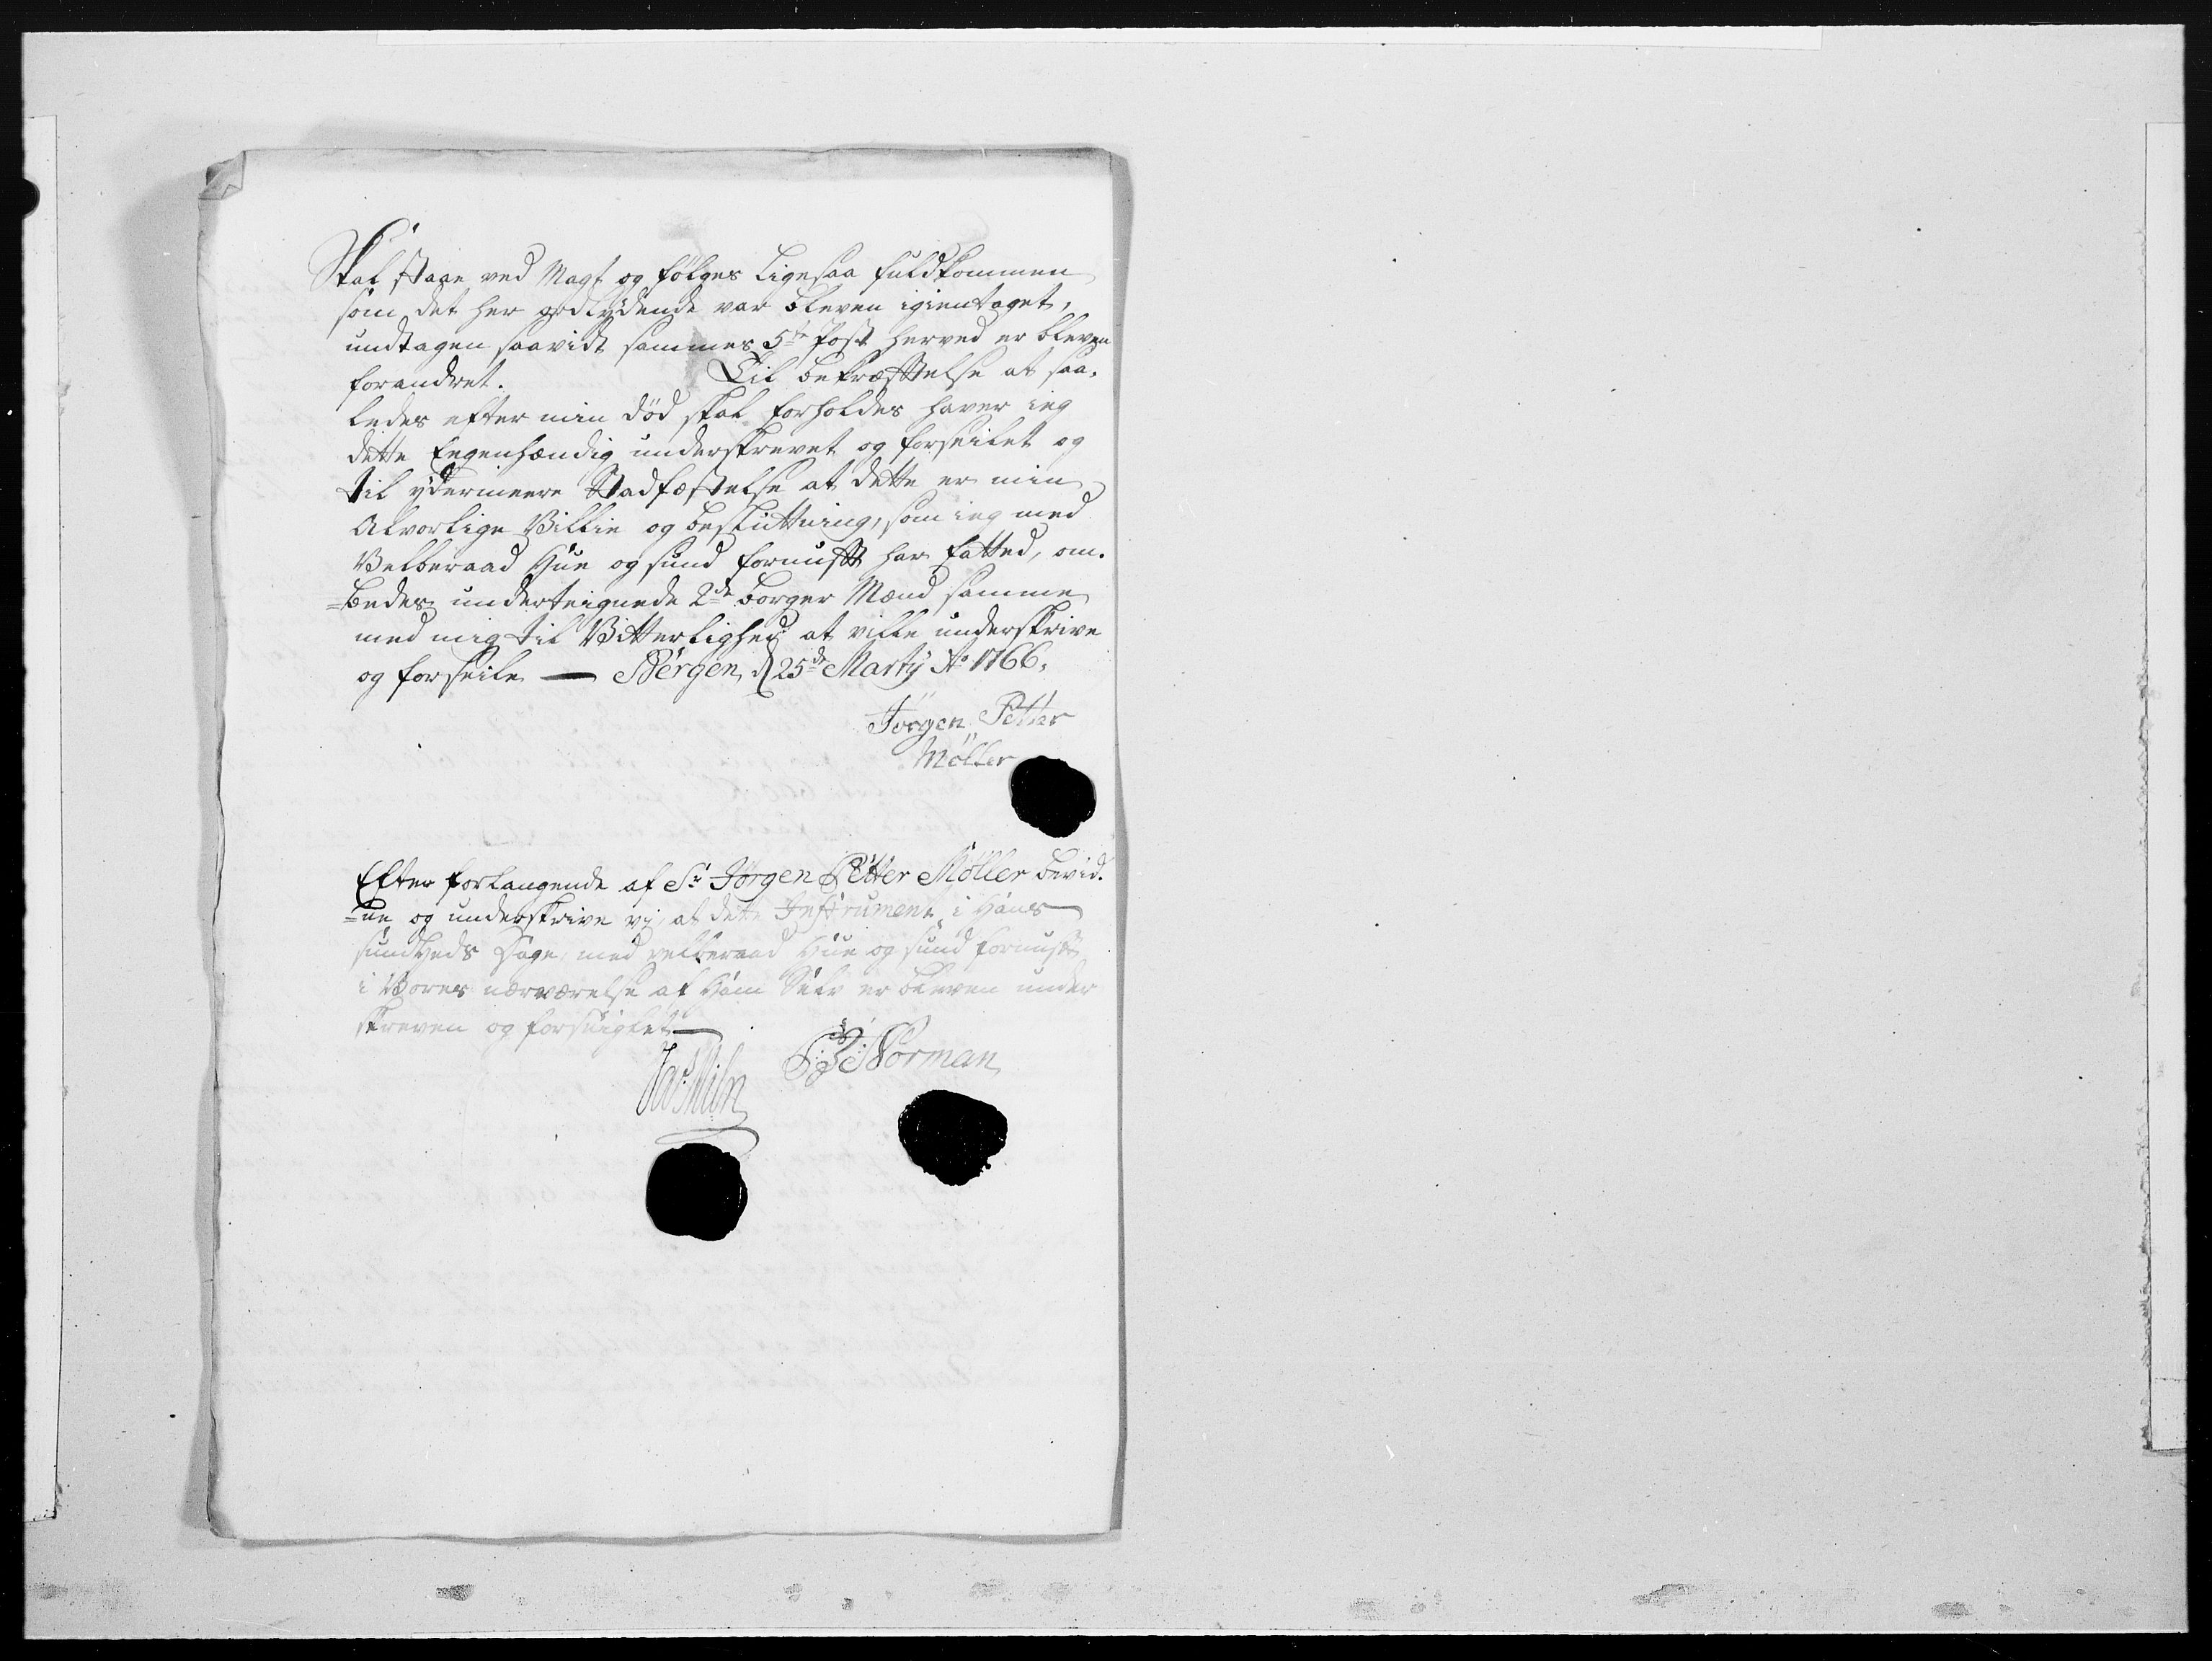 Skal staae ved Magt og følges Ligesaa fuldkommen
som det her ordlydende var bleven igientaget,
undtagen saavidt sammes 5te Post herved er bleven
forandret. Til bekræfftelse at saa-
ledes efter min død skal forholdes haver ieg
dette Eegenhændig underskrevet og forseilet og
til ydermeere Stadfæstelse at dette er min
Alvorlige Villie og beslutning, som ieg med
Velberaad Hue og sund fornufft har fatted, om-
=bedes underteignede 2de borger Mænd samme
med mig til Vitterlighed at ville underskrive
og forseile — Bergen d 25de Martij Ao 1766.
Jörgen Petter
Möller
Efter forlangende af Sr Jörgen Petter Möller bevid-
=ne og underskrive vj, at dette Instrument i Hans
sundheds Dage, med velberaad Hue og sund fornuft
i Vores nærværelse af Ham Selv er bleven under
skreven og forseiglet —
Jas Miln Norman